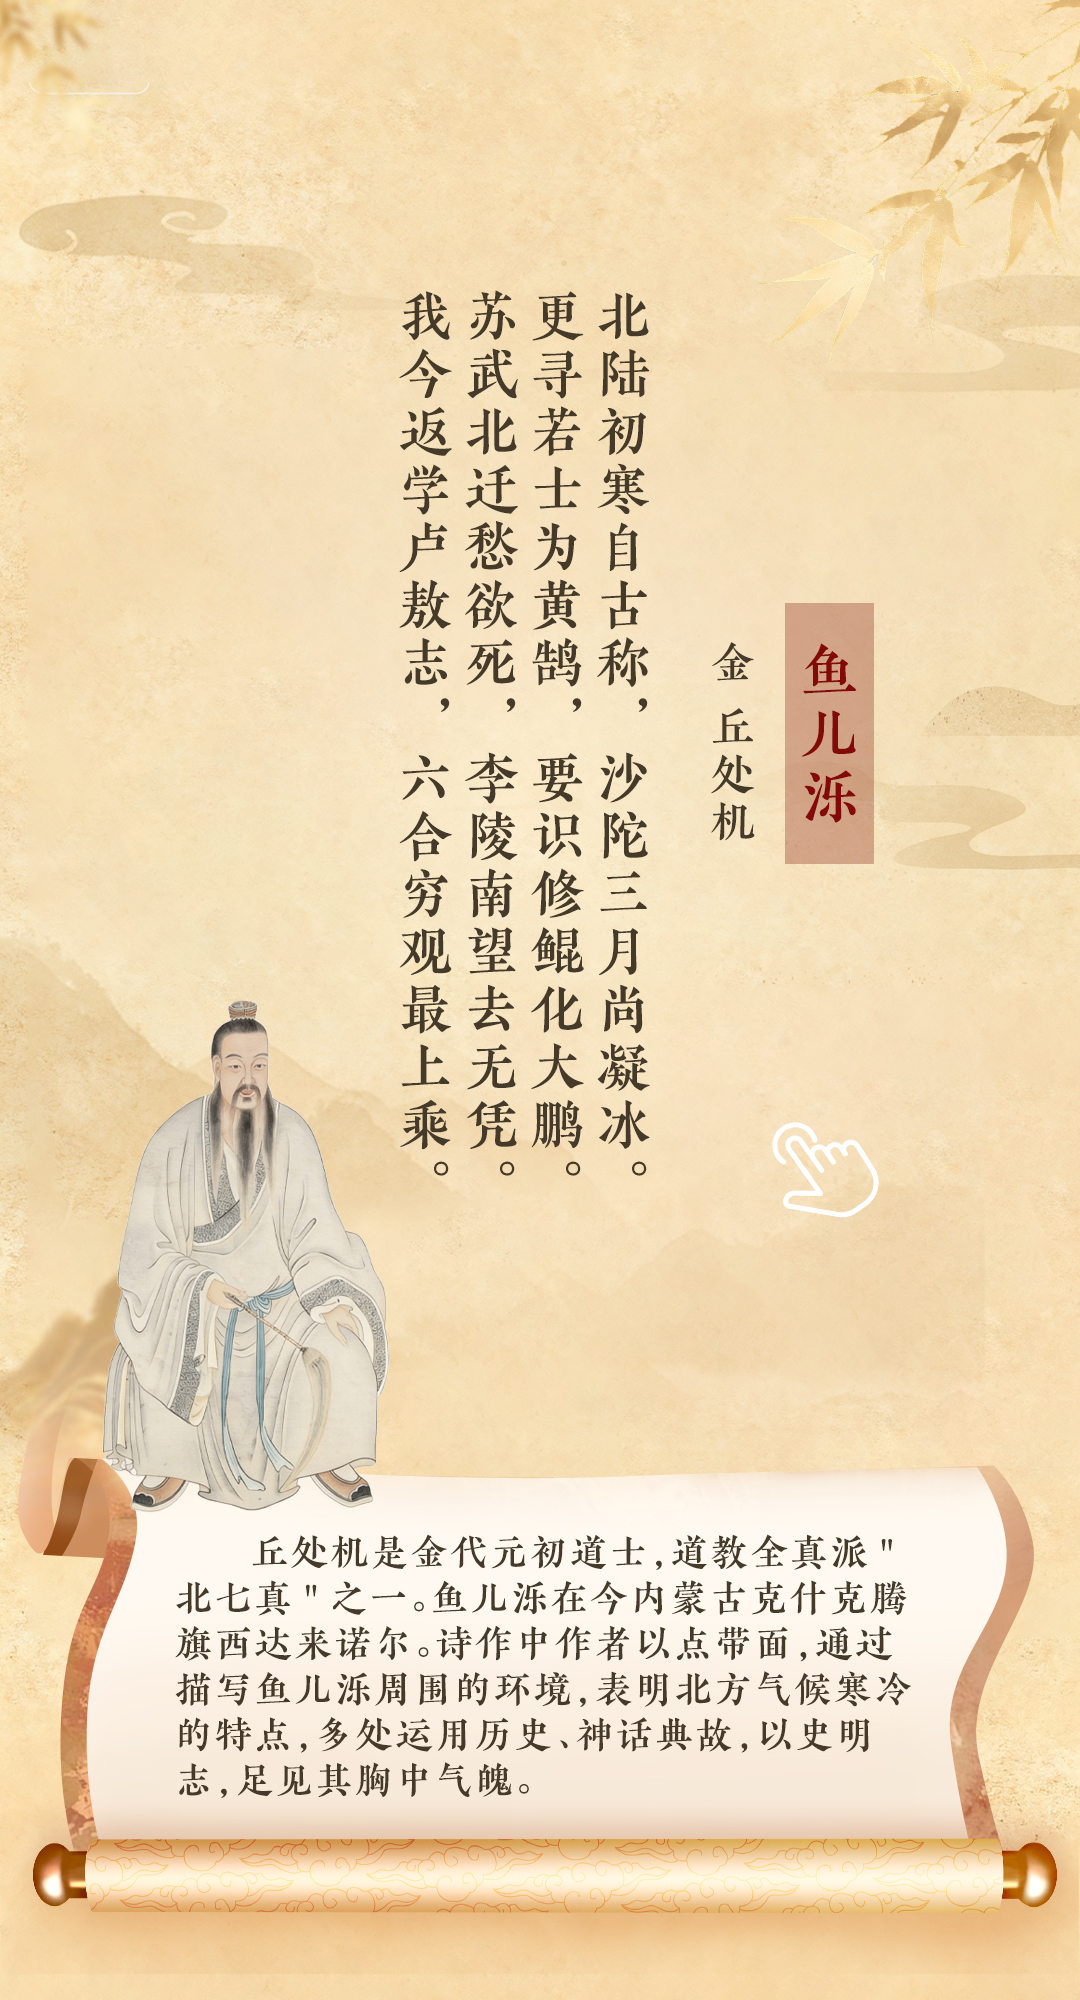 鱼儿泺
金 丘处机
北陆初寒自古称，沙陀三月尚凝冰。
更寻若士为黄鹄，要识修鲲化大鹏。
苏武北迁愁欲死，李陵南望去无凭。
我今返学卢敖志，六合穷观最上乘。
丘处机是金代元初道士，道教全真派"
北七真"之一。鱼儿泺在今内蒙古克什克腾
旗西达来诺尔。诗作中作者以点带面，通过
描写鱼儿泺周围的环境，表明北方气候寒冷
的特点，多处运用历史、神话典故，以史明
志，足见其胸中气魄。